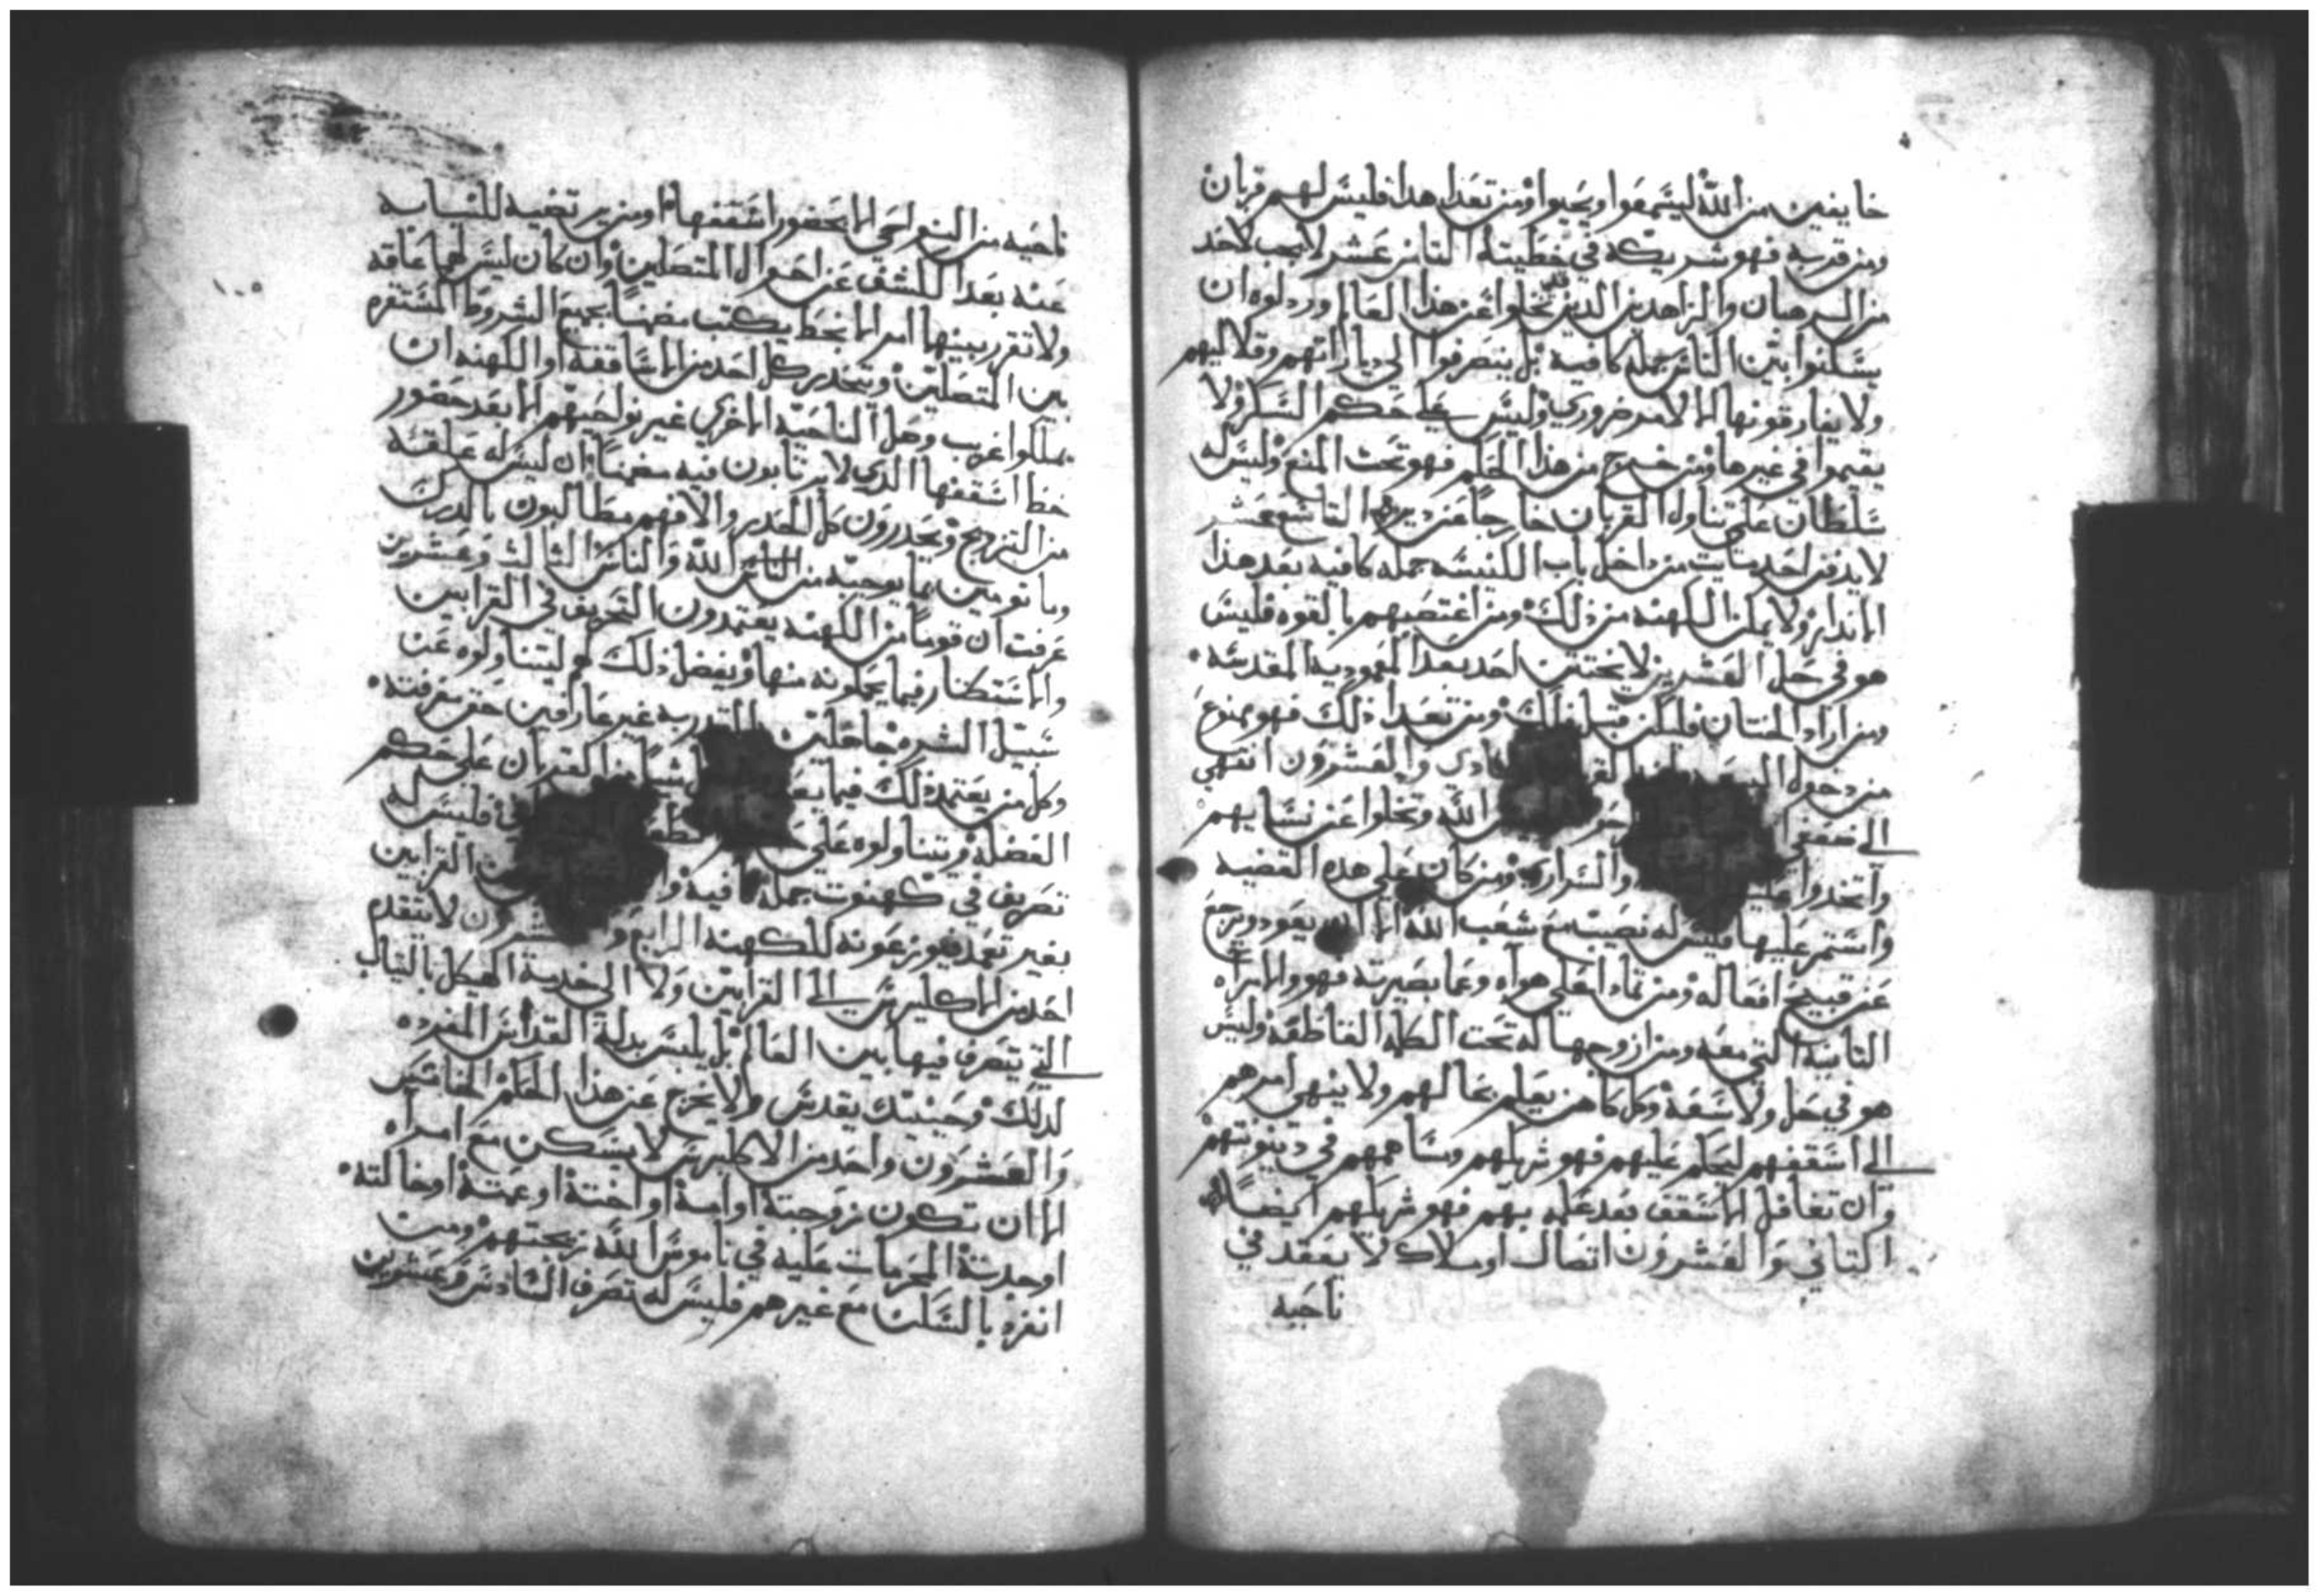 خايفين من الله ليسمعوا ويحيوا ومن تعدا هدا فليس لهم قربان
ومن قربه فهو شريكه في خطيته الثامن عشر لا يجب لاحد
من الرهبان والزاهدين الدين تخلوا عن هذا العالم وردلوه ان
يسكنوا بين الناس جمله كافيه بل ينصرفوا الي دياراتهم وقلاليهم
ولا يفارقونها الا لامر ضروري وليس علي حكم السكن ولا
يقيموا في غيرها ومن خرج من هذا الحكم فهو تحت المنع وليس له
سلطان علي تناول القربان خارجا عن ديره التاسع عشر
لا يدفن احد مايت من داخل باب الكنيسه جمله كافيه بعد هذا
الانذار ولا يمكن الكهنه من ذلك ومن اغتصبهم بالقوه فليس
هو في حل العشرين لا يختتن احد بعد المعموديه المقدسه
ومن اراد الختان فليكن قبل ذلك ومن تعدا ذلك فهو ممنوع
من دخول البيعه والعشرون انتهي
الي ضعفي الله وتخلوا عن نسايهم
واتخدوا عليهم والسراري ومن كان علي هده القضيه
واستمر عليها فليس له نصيب مع شعب الله الا ان يعود ويرجع
عن قبيح افعاله ومن تمادا علي هواه وعما بصيرته فهو والامراه
الثانيه التي معه ومن ازوجها له تحت الكلمه القاطعه وليس
هو في حل ولا سعه وكل كاهن يعلم بحالهم ولا ينهي امرهم
الي اسقفهم ليحكم عليهم فهو شريكهم ومساهمهم في دينونتهم
وان تغافل الاسقف بعد علمه بهم فهو شريكهم ايضا
التاني والعشرون اتصال او ملاك لا يعقد في
ناحيه
ناحيه من النواحي الا بحضور اسقفها او من يرتضيه للنيابه
عنه بعد الكشف عن احوال المتصلين وان كان ليس لهما عاقه
ولا تقرر بينهما امر الا بخط يكتب مضمنا بجميع الشروط المستقره
بين المتصلين ويتحدر كل احد من الاساقفه او الكهنه ان
يملكوا غريب وصل الناحيه الاخري غير نواحيهم الا بعد حضور
خط اسقفها الدي لا يرتابون فيه مضمنا وان ليس له علقه
من التزويج ويحدرون كل الحدر والا فهم مطالبون بالدرك
وما نومين بما يوجبه من الله والناس الثالث وعشرين
عرفت ان قوما من الكهنه يعتمدون التحريف في القرابين
والاستكثار فيما يحملونه منها ويفضل ذلك لهم ليتناولوه عن
سبيل الشره جاهلين القدر به غير عارفين حق معرفته
وكل من يعتمد ذلك فيما بعد شيا من القربان علي حكم
الفضله ويتناولوه علي فليس له
تصريف في كهنوت جمله كافيه القرابين
بغير تعمد فهو زعونه للكهنه الرابع وعشرون لا يتقدم
احد من الاكليرس الي القرابين ولا الي خدمة الهيكل بالتياب
التي يتصرف فيها بين العالم بل يلبس بدلة القداس المفرده
لدلك وحينيد يقدس ولا يخرج عن هذا الحكم الخامس
والعشرون واحد من الاكليرس لا يسكن مع امراه
الا ان تكون زوجته او امه او اخته او عمته او خالته
او جدته المحرمات عليه في ناموس الله زيجتهم ومن
انفرد بالسكن مع غيرهم فليس له تصرف السادس وعشرين